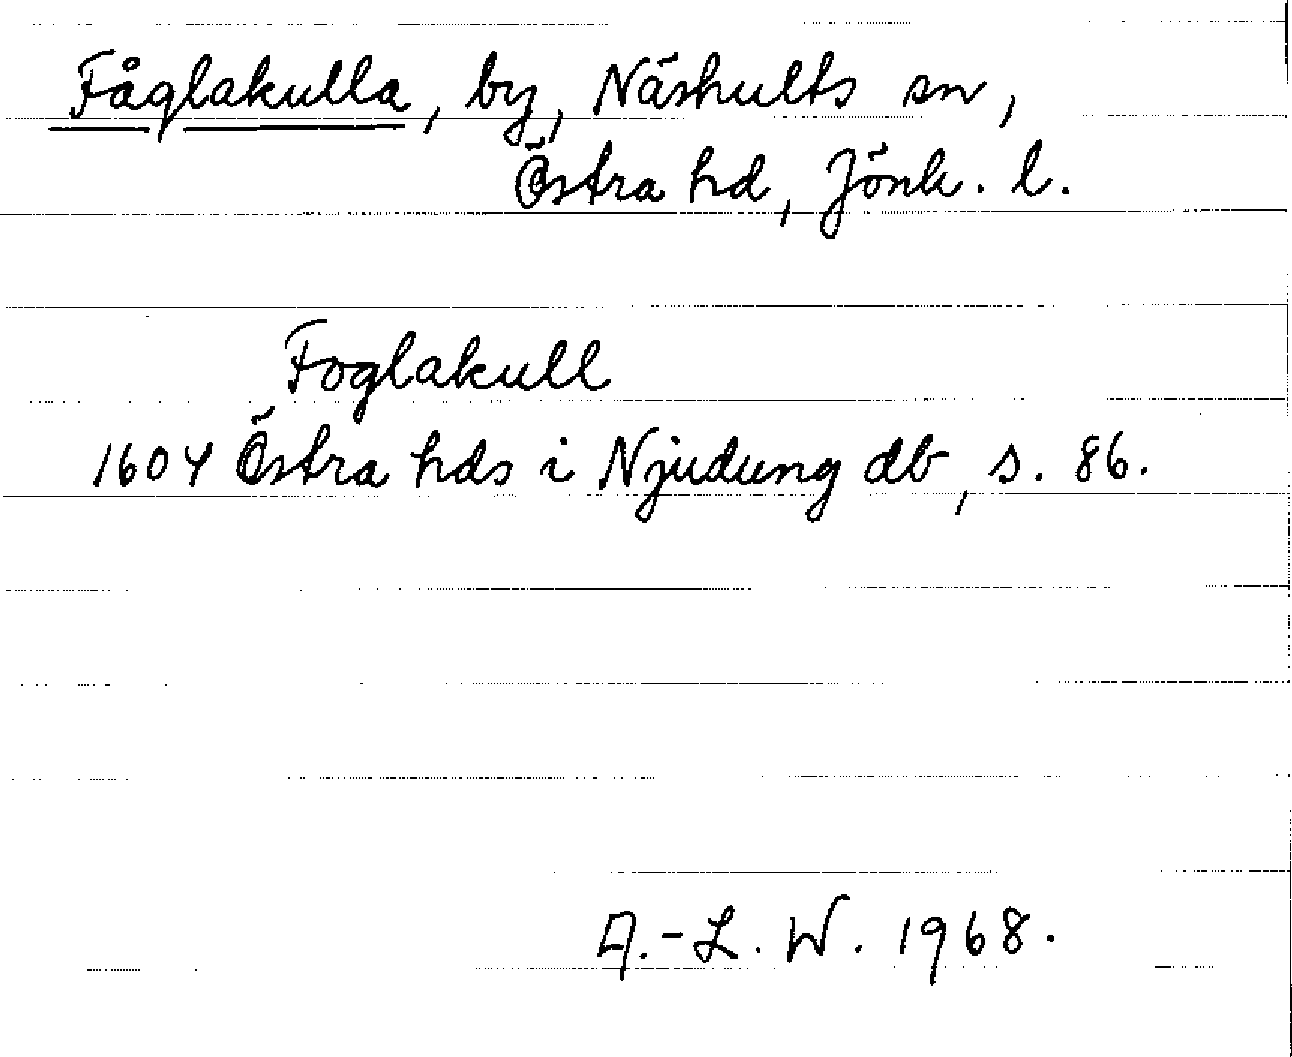 Fåglakulla, by, Näshults sn,
Östra hd, Jönk. l.
Foglakull
1604 Östra hds i Njudung db, s. 86.
A.-L. W. 1968.